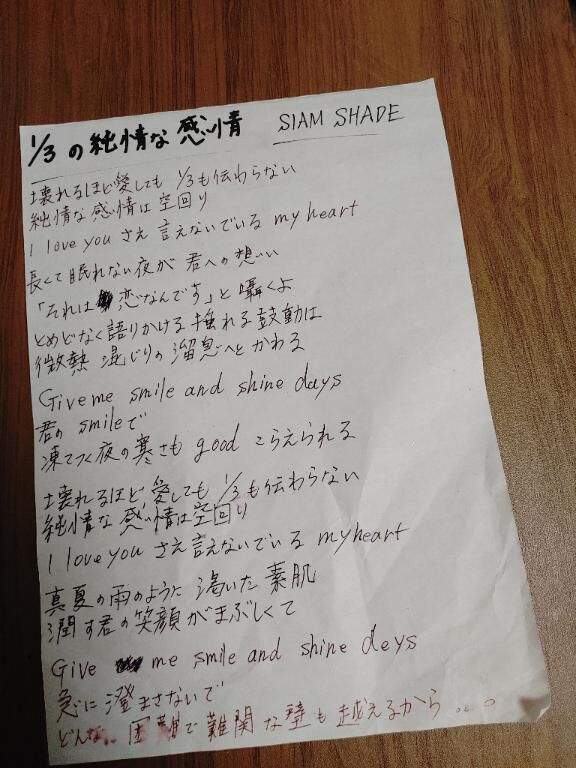 1/3の純情な感情 SIAM SHADE
壊れるほど愛しても 1/3も伝わらない
純情な感情は空回り
I love you さえ言えないでいる my heart
長くて眠れない夜が君への想い
「それは恋なんです」と囁くよ
とめどなく語りかける揺れる鼓動は
微熱混じりの溜息へとかわる
Give me smile and shine days
君の smile で
凍てつく夜の寒さも good こらえられる
壊れるほど愛しても 1/3も伝わらない
純情な感情は空回り
I love you さえ言えないでいる my heart
真夏の雨のように渇いた素肌
潤す君の笑顔がまぶしくて
Give me smile and shine days
急に澄まさないで
どんな.. 困難で難関な壁も越えるから...。